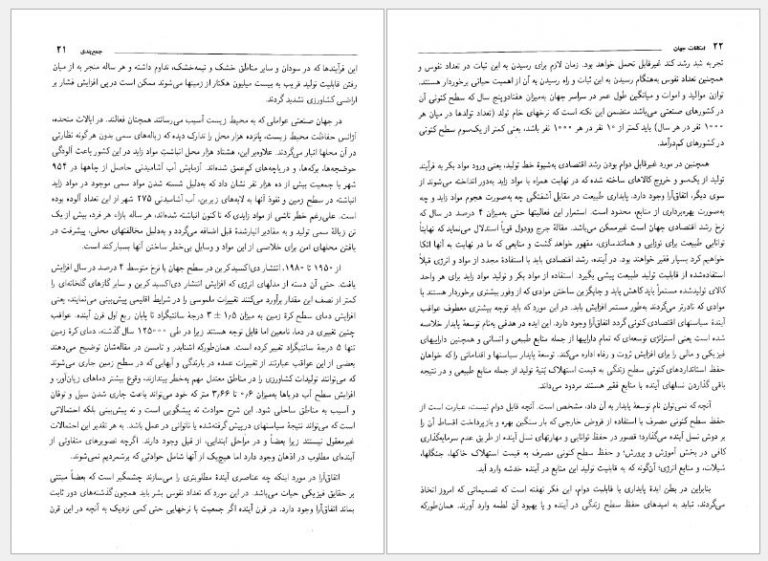 جمع‌بندی ۲۱
این فرآیندها که در سودان و سایر مناطق خشک و نیمه‌خشک، تداوم داشته و هر ساله منجر به از میان
رفتن قابلیت تولید قریب به بیست میلیون هکتار از زمینها می‌شوند ممکن است در پی افزایش فشار بر
اراضی کشاورزی تشدید گردند.
در جهان صنعتی عواملی که به محیط زیست آسیب می‌رسانند همچنان فعالند. در ایالات متحده،
آژانس حفاظت محیط زیست، پانزده هزار محل را تدارک دیده که زباله‌های سمی بدون هرگونه نظارتی
در آن محلها انبار می‌گردند. علاوه‌بر این، هشتاد هزار محل انباشت مواد زاید در این کشور باعث آلودگی
حوضچه‌ها، برکه‌ها، و دریاچه‌های کم‌عمق شده‌اند. آزمایش آب آشامیدنی حاصل از چاهها در ۹۵۴
شهر با جمعیت بیش از ده هزار نفر نشان داد که به‌دلیل شسته شدن مواد سمی موجود در مواد زاید
انباشته در سطح زمین و نفوذ آنها به لایه‌های زیرین، آب آشامیدنی ۲۷۵ شهر از این تعداد آلوده بوده
است. علی‌رغم خطر ناشی از مواد زایدی که تا کنون انباشته شده‌اند، هر ساله بازاء هر فرد، بیش از یک
تن زبالهٔ سمی تولید و به مقادیر انبارشدهٔ قبل اضافه می‌گردد و به‌دلیل مخالفتهای محلی، پیشرفت در
یافتن محلهای امن برای خلاصی از این مواد و وسایل بی‌خطر ساختن آنها بسیار کند است.
از ۱۹۵۰ تا ۱۹۸۰، انتشار دی‌اکسیدکربن در سطح جهان با نرخ متوسط ۴ درصد در سال افزایش
یافت. حتی آن دسته از مدلهای انرژی که افزایش انتشار دی‌اکسید کربن و سایر گازهای گلخانه‌ای را
کمتر از نصف این مقدار برآورد می‌کنند تغییرات ملموسی را در شرایط اقلیمی پیش‌بینی می‌نمایند، یعنی
افزایش دمای سطح کرهٔ زمین به میزان ۱٫۵ ± ۳ درجهٔ سانتیگراد تا پایان ربع اول قرن آینده. عواقب
چنین تغییری در دما، نامعین اما قابل توجه هستند زیرا در طی ۱۲۵۰۰۰ سال گذشته، دمای کرهٔ زمین
تنها ۵ درجهٔ سانتیگراد تغییر کرده است. همان‌طورکه اشنایدر و تامسن در مقاله‌شان توضیح می‌دهند
بعضی از این عواقب عبارتند از تغییرات عمده در بارندگی و آبهایی که در سطح زمین جاری می‌شوند
که می‌توانند تولیدات کشاورزی را در مناطق معتدل مهم به‌خطر بیندازند، وقوع بیشتر دماهای زیان‌آور، و
افزایش سطح آب دریاها به‌میزان ۰٫۶ تا ۳٫۶۶ متر که خود می‌تواند باعث جاری شدن سیل و توفان
و آسیب به مناطق ساحلی شود. این شرح حوادث نه پیشگویی است و نه پیش‌بینی بلکه احتمالاتی
است که می‌تواند نتیجهٔ سیاستهای درپیش‌گرفته‌شده یا ناتوانی در عمل باشد. به هر تقدیر این احتمالات
غیرمعقول نیستند زیرا بعضاً و در مراحل ابتدایی، از قبل وجود دارند. اگرچه تصویرهای متفاوتی از
آینده‌ای مطلوب در اذهان وجود دارد اما هیچیک از آنها شامل حوادثی که برشمردیم نمی‌شوند.
اتفاق‌آرا در مورد اینکه چه عناصری آیندهٔ مطلوبتری را می‌سازند چشمگیر است که بعضاً مبتنی
بر حقایق فیزیکی حیات می‌باشد. در این مورد که تعداد نفوس بشر باید همچون گذشته‌های دور ثابت
بماند اتفاق‌آرا وجود دارد. در قرن آینده اگر جمعیت با نرخهایی حتی کمی نزدیک به آنچه در این قرن
۲۲ امکانات جهان
تجربه شد رشد کند غیرقابل تحمل خواهد بود. زمان لازم برای رسیدن به این ثبات در تعداد نفوس و
همچنین تعداد نفوس به‌هنگام رسیدن به این ثبات و راه رسیدن به آن از اهمیت حیاتی برخوردار هستند.
توازن موالید و اموات و میانگین طول عمر در سراسر جهان به‌میزان هفتادوپنج سال که سطح کنونی آن
در کشورهای صنعتی می‌باشد متضمن این نکته است که نرخهای خام تولد (تعداد تولدها در میان هر
۱۰۰۰ نفر در هر سال) باید کمتر از ۱۰ نفر در هر ۱۰۰۰ نفر باشد، یعنی کمتر از یک‌سوم سطح کنونی
در کشورهای کم‌درآمد.
همچنین در مورد غیرقابل دوام بودن رشد اقتصادی به‌شیوهٔ خط تولید، یعنی ورود مواد بکر به فرآیند
تولید از یک‌سو و خروج کالاهای ساخته شده که در نهایت همراه با مواد زاید به‌دور انداخته می‌شوند از
سوی دیگر، اتفاق‌آرا وجود دارد. پایداری طبیعت در مقابل آشفتگی چه به‌صورت هجوم مواد زاید و چه
به‌صورت بهره‌برداری از منابع، محدود است. استمرار این فعالیتها حتی به‌میزان ۴ درصد در سال که
نرخ رشد اقتصادی جهان است غیرممکن می‌باشد. مقالهٔ جرج وودول قویاً استدلال می‌نماید که نهایتاً
توانایی طبیعت برای نوزایی و همانندسازی، مقهور خواهد گشت و منابعی که ما در نهایت به آنها اتکا
خواهیم کرد بسیار فقیر خواهند بود. در آینده، رشد اقتصادی باید با استفادهٔ مجدد از مواد و انرژی قبلاً
استفاده‌شده از قابلیت تولید طبیعت پیشی بگیرد. استفاده از مواد بکر و تولید مواد زاید برای هر واحد
کالای تولیدشده مستمراً باید کاهش یابد و جایگزین ساختن موادی که از وفور بیشتری برخوردار هستند با
موادی که نادرتر می‌گردند به‌طور مستمر افزایش یابد. در این مورد که باید توجه بیشتری معطوف عواقب
آیندهٔ سیاستهای اقتصادی کنونی گردد اتفاق‌آرا وجود دارد. این ایده در هدفی به‌نام توسعهٔ پایدار خلاصه
شده است یعنی استراتژی توسعه‌ای که تمام داراییها از جمله منابع طبیعی و انسانی و همچنین داراییهای
فیزیکی و مالی را برای افزایش ثروت و رفاه اداره می‌کند. توسعهٔ پایدار سیاستها و اقداماتی را که خواهان
حفظ استانداردهای کنونی سطح زندگی به قیمت استهلاک بُنیهٔ تولید از جمله منابع طبیعی و در نتیجه
باقی گذاردن نسلهای آینده با منابع فقیر هستند مردود می‌داند.
آنچه که نمی‌توان نام توسعهٔ پایدار به آن داد، مشخص است. آنچه قابل دوام نیست، عبارت است از
حفظ سطح کنونی مصرف با استفاده از قروض خارجی که بار سنگین بهره و بازپرداخت اقساط آن را
بر دوش نسل آینده می‌گذارد؛ قصور در حفظ توانایی و مهارتهای نسل آینده از طریق عدم سرمایه‌گذاری
کافی در بخش آموزش و پرورش؛ و حفظ سطح کنونی مصرف به قیمت استهلاک خاکها، جنگلها،
شیلات، و منابع انرژی؛ آن‌گونه که به قابلیت تولید این منابع در آینده خدشه وارد آید.
بنابراین در بطن ایدهٔ پایداری یا قابلیت دوام، این فکر نهفته است که تصمیماتی که امروز اتخاذ
می‌گردند، نباید به امیدهای حفظ سطح زندگی در آینده و یا بهبود آن لطمه وارد آورند. همان‌طورکه